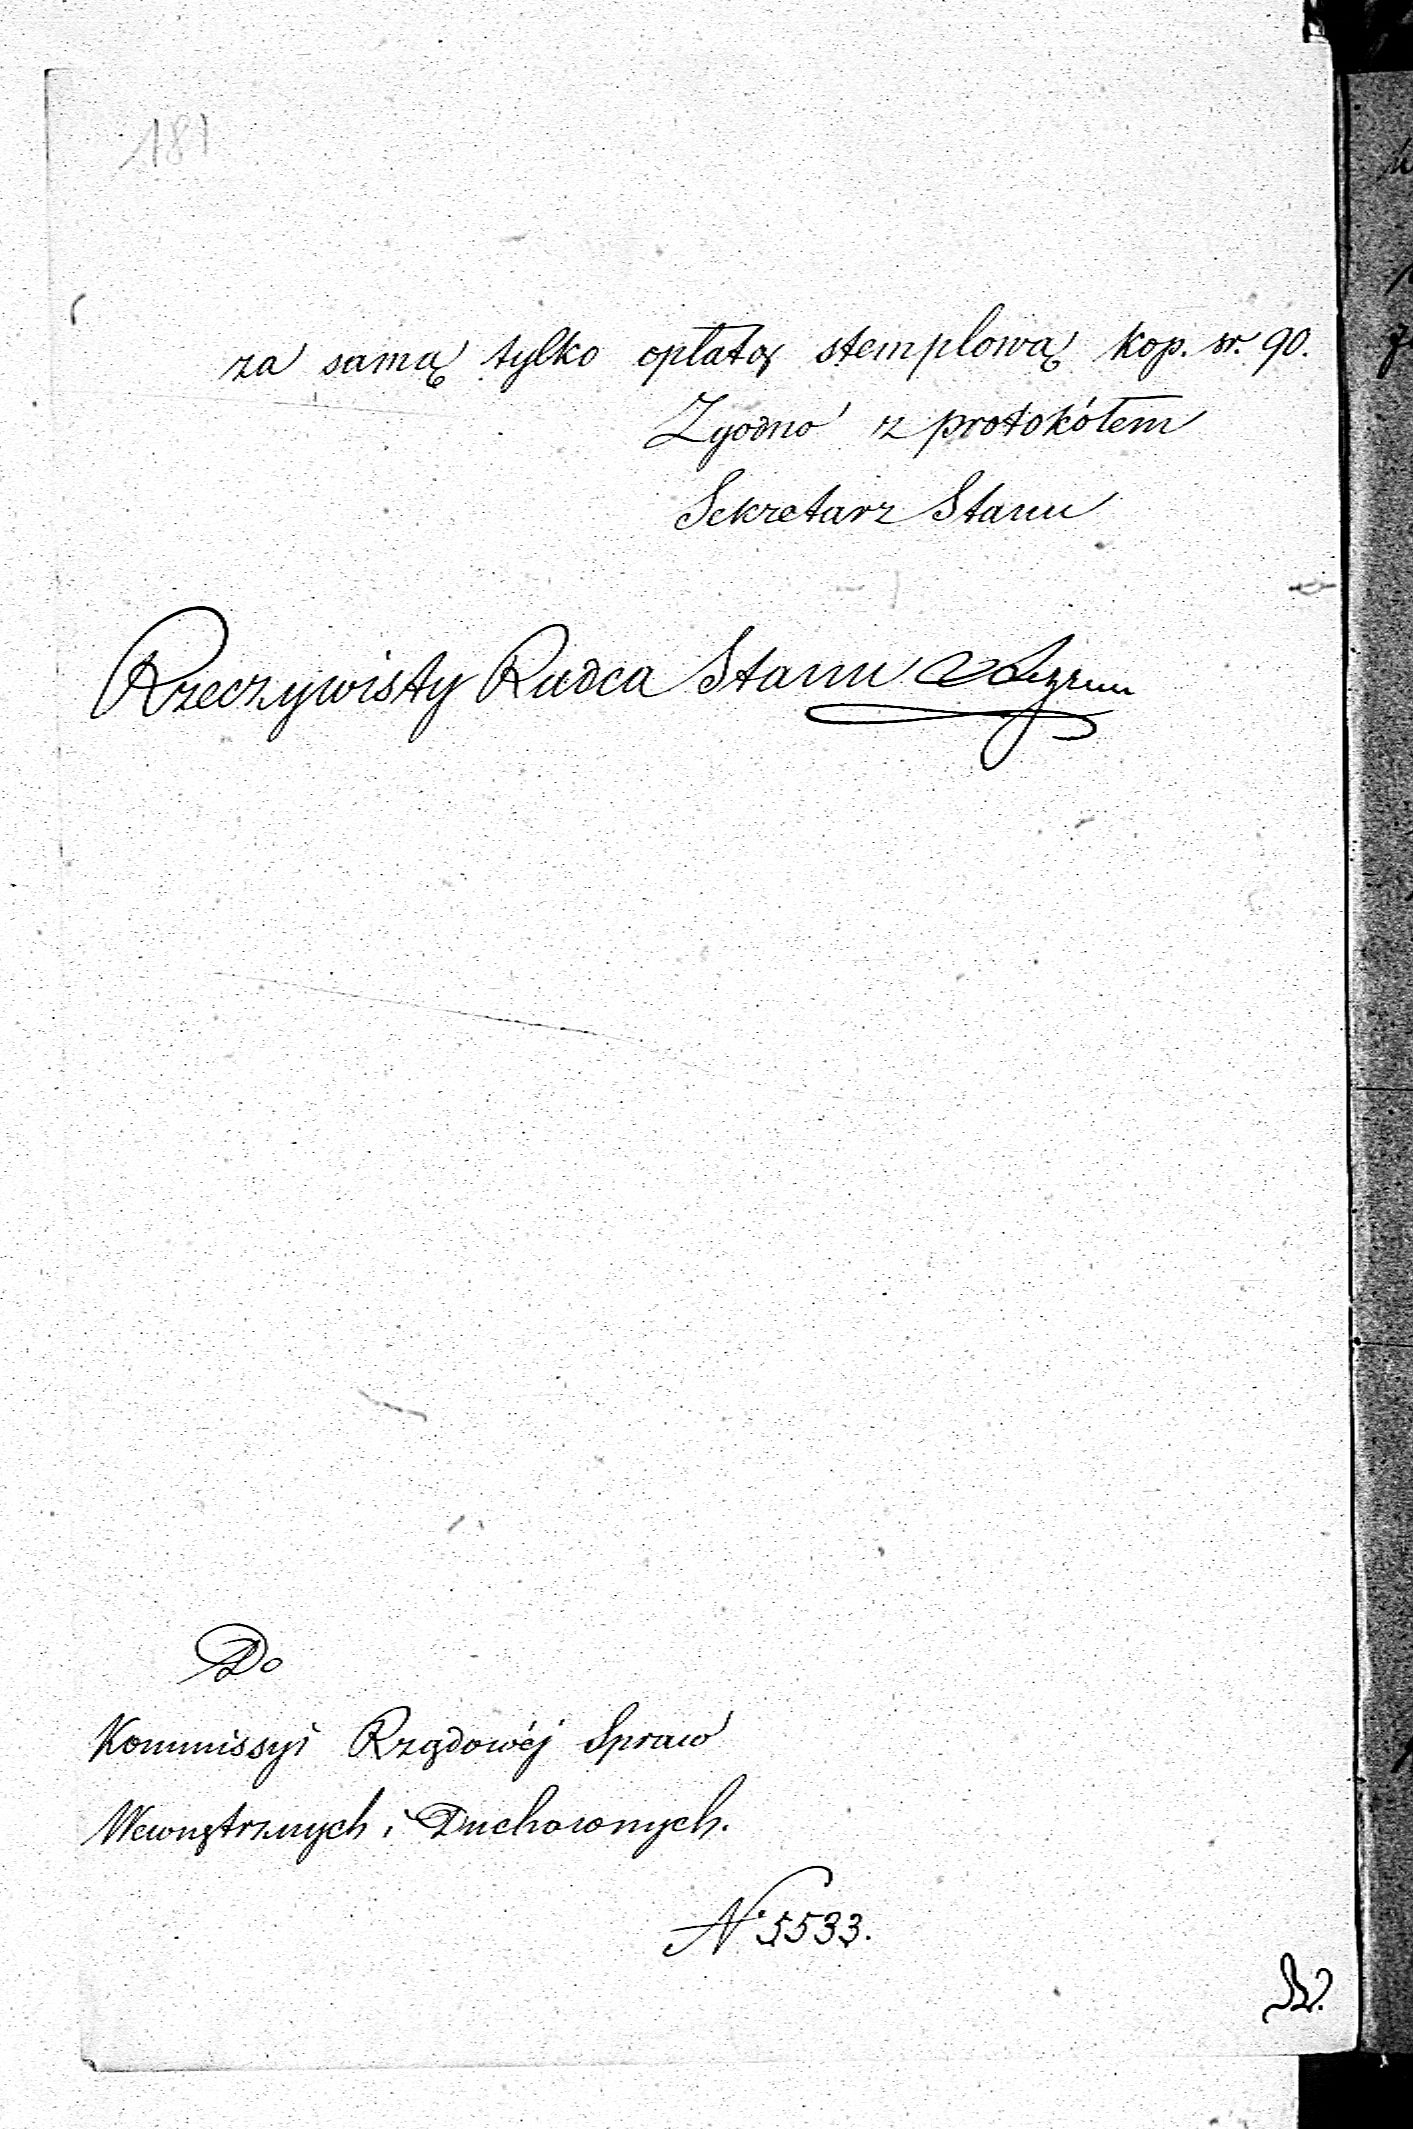 181
za samą tylko opłatą stemplową kop. sr. 90.
Zgodno z protokółem
Sekretarz Stanu
Rzeczywisty Radca Stanu
Do
Kommissyi Rządowéj Spraw
Wewnętrznych i Duchownych.
N. 5533.